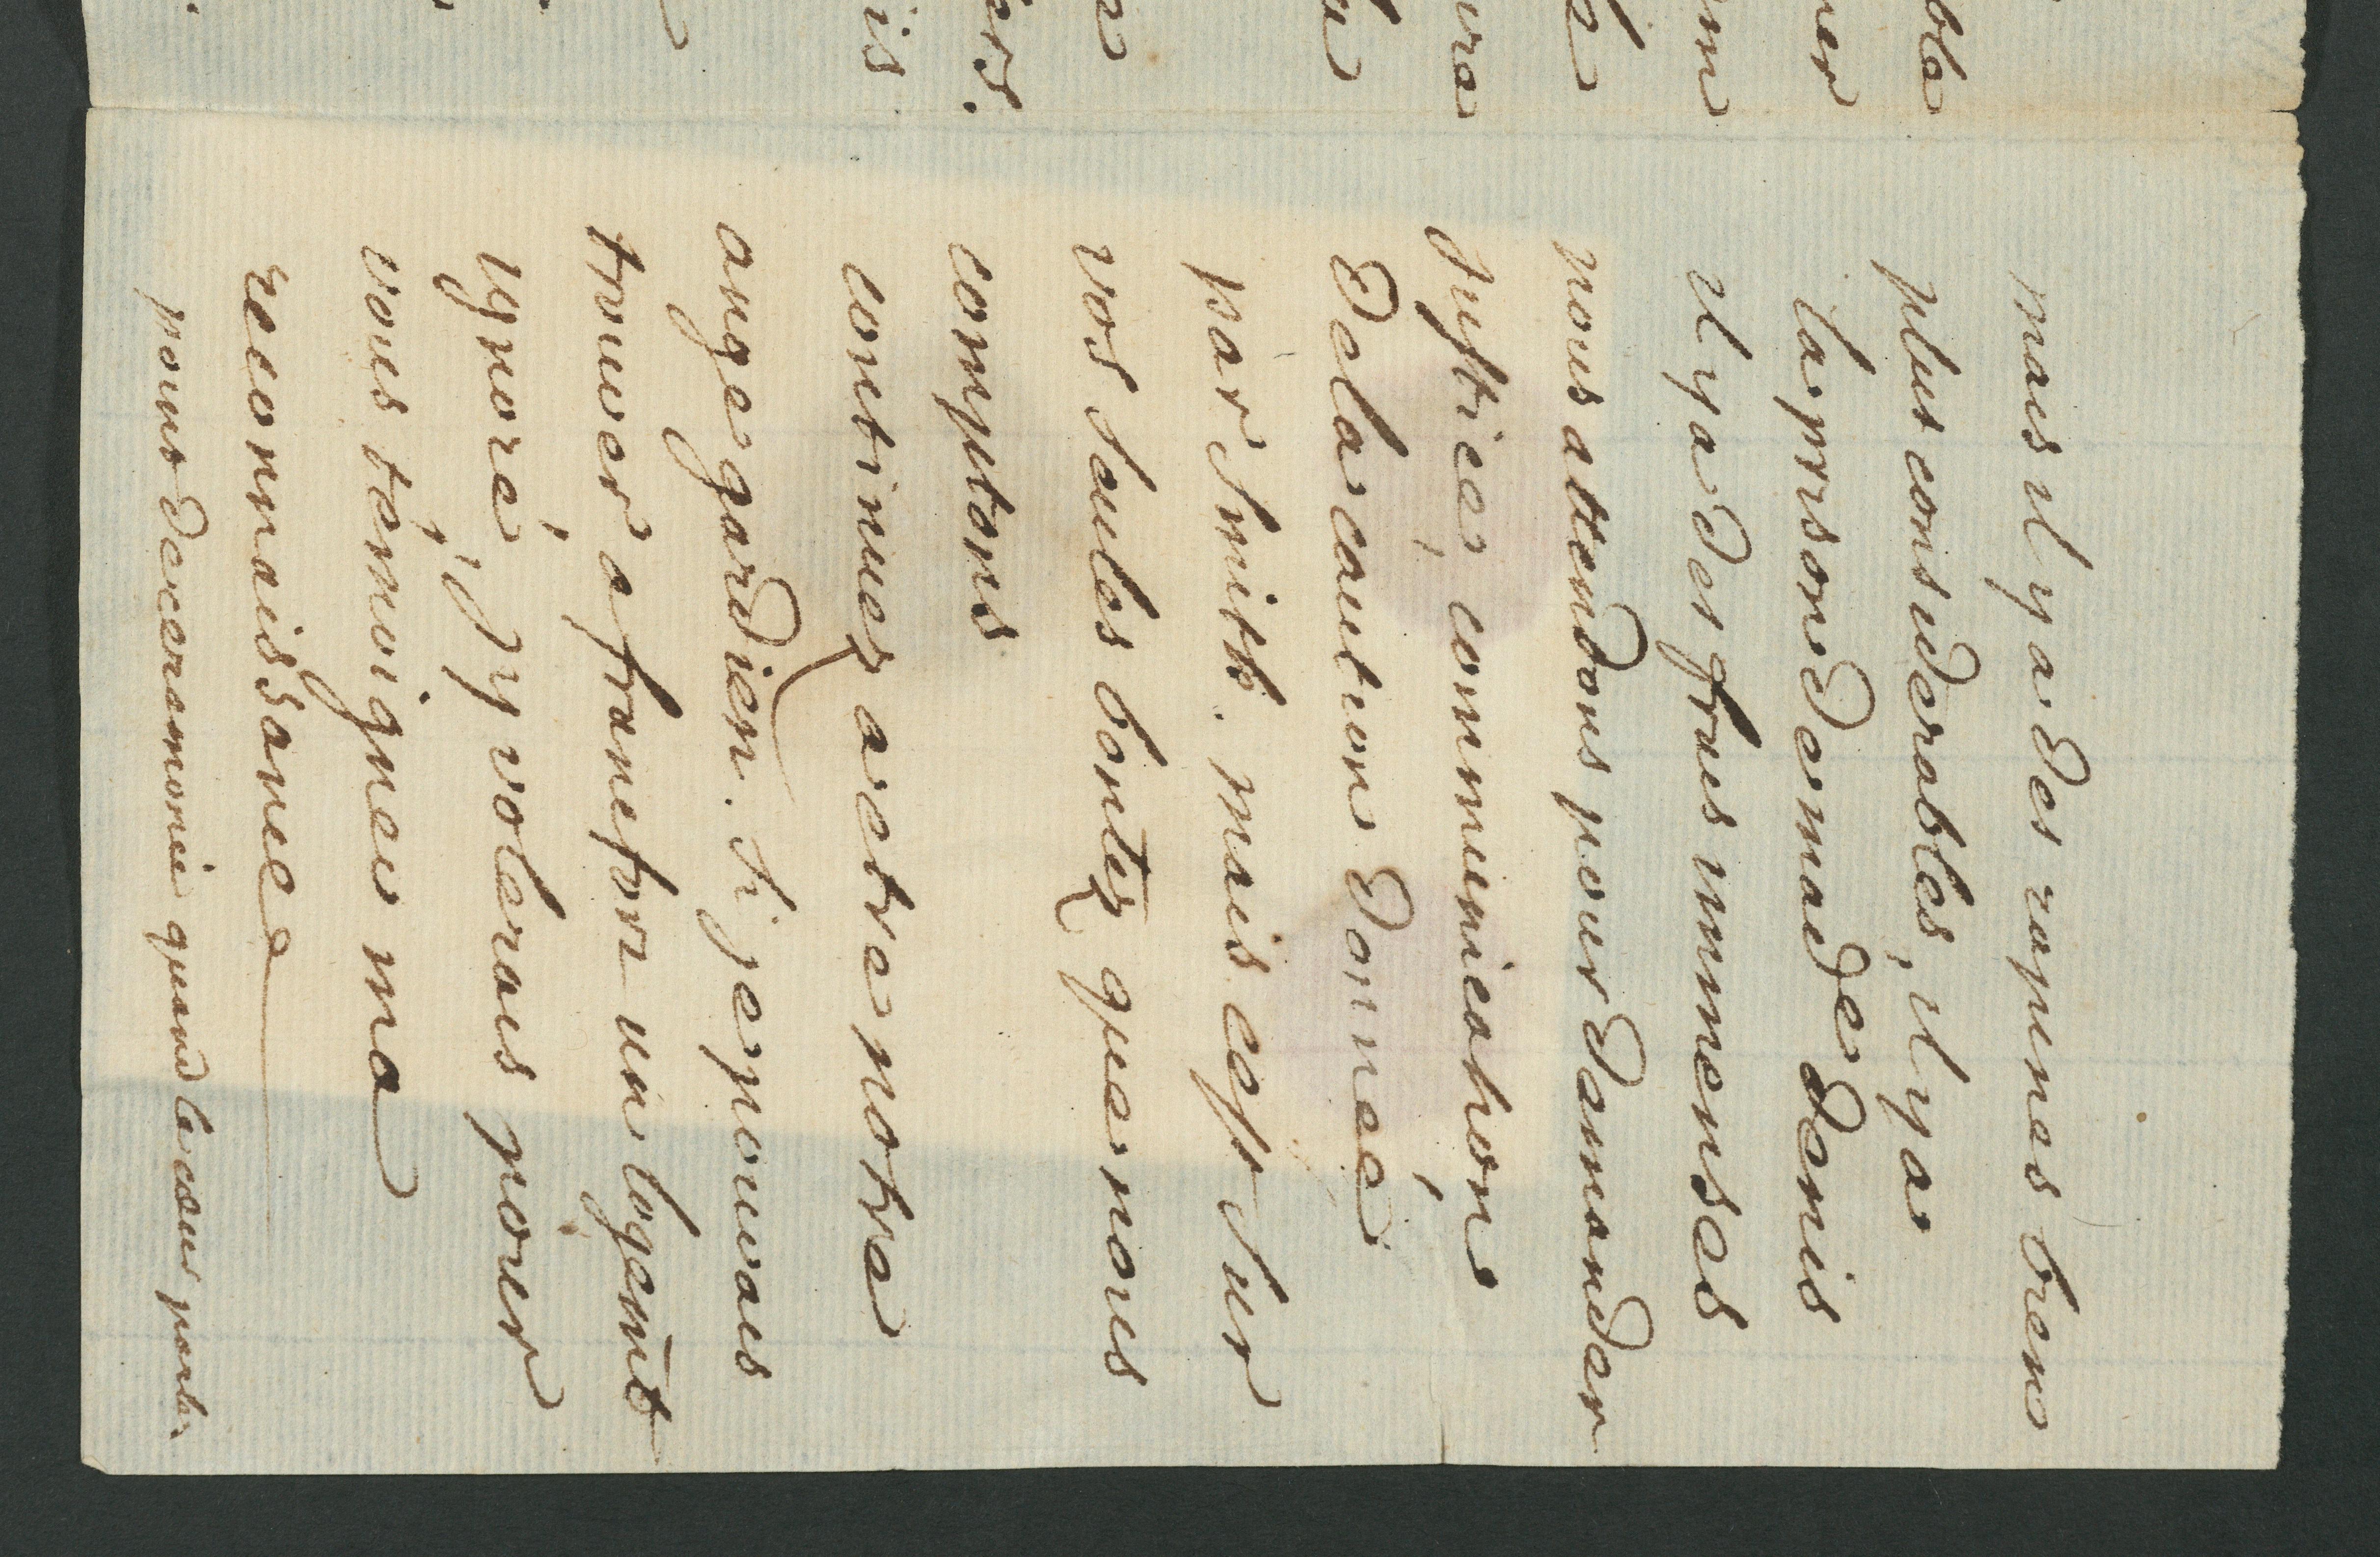 mais il ya des rapines bien
plus considerables, il ya
la prison de mad de denis
il ya des frais immenses
nous attendons pour demander
justice, communication
de la caution donnée
par Smith. mais cest sur
vos seules bontez que nous
comptons
continuez a etre notre
ange gardien. si je pouvais
trouver a francfor un logement
ignoré, j'y volerais pour
vous temoigner ma
reconnaissance
point de ceremonie quand le cœur parle.
ble
ner
me
ure
ers.
is